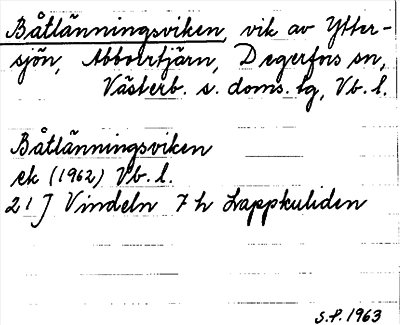 Båtlänningsviken, vik av Ytter-
sjön, Abborrtjärn, Degerfors sn,
Västerb. s. doms. lg, Vb. l.
Båtlänningsviken
ek (1962) Vb. l.
21 J Vindeln 7 h Lappkuliden
S.P. 1963